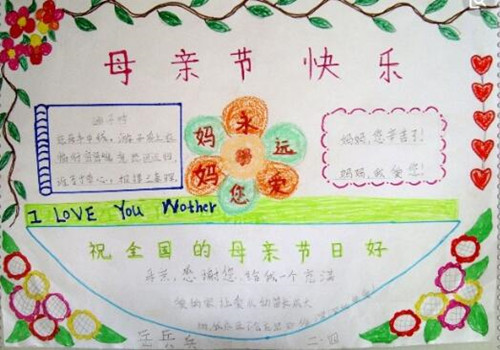 母亲节快乐
游子吟
慈母手中线，游子身上衣
临行密密缝 意恐迟迟归
谁言寸草心，报得三春晖
妈妈永远爱您
妈妈,您辛苦了!
妈妈,我爱您!
I LOVE You Mother
祝全国的母亲节日好
感谢您,给我一个